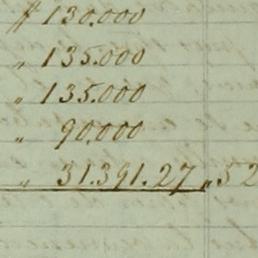 # 130.000
„ 135.000
„ 135.000
„ 90.000
„ 31.391.27 „ 52